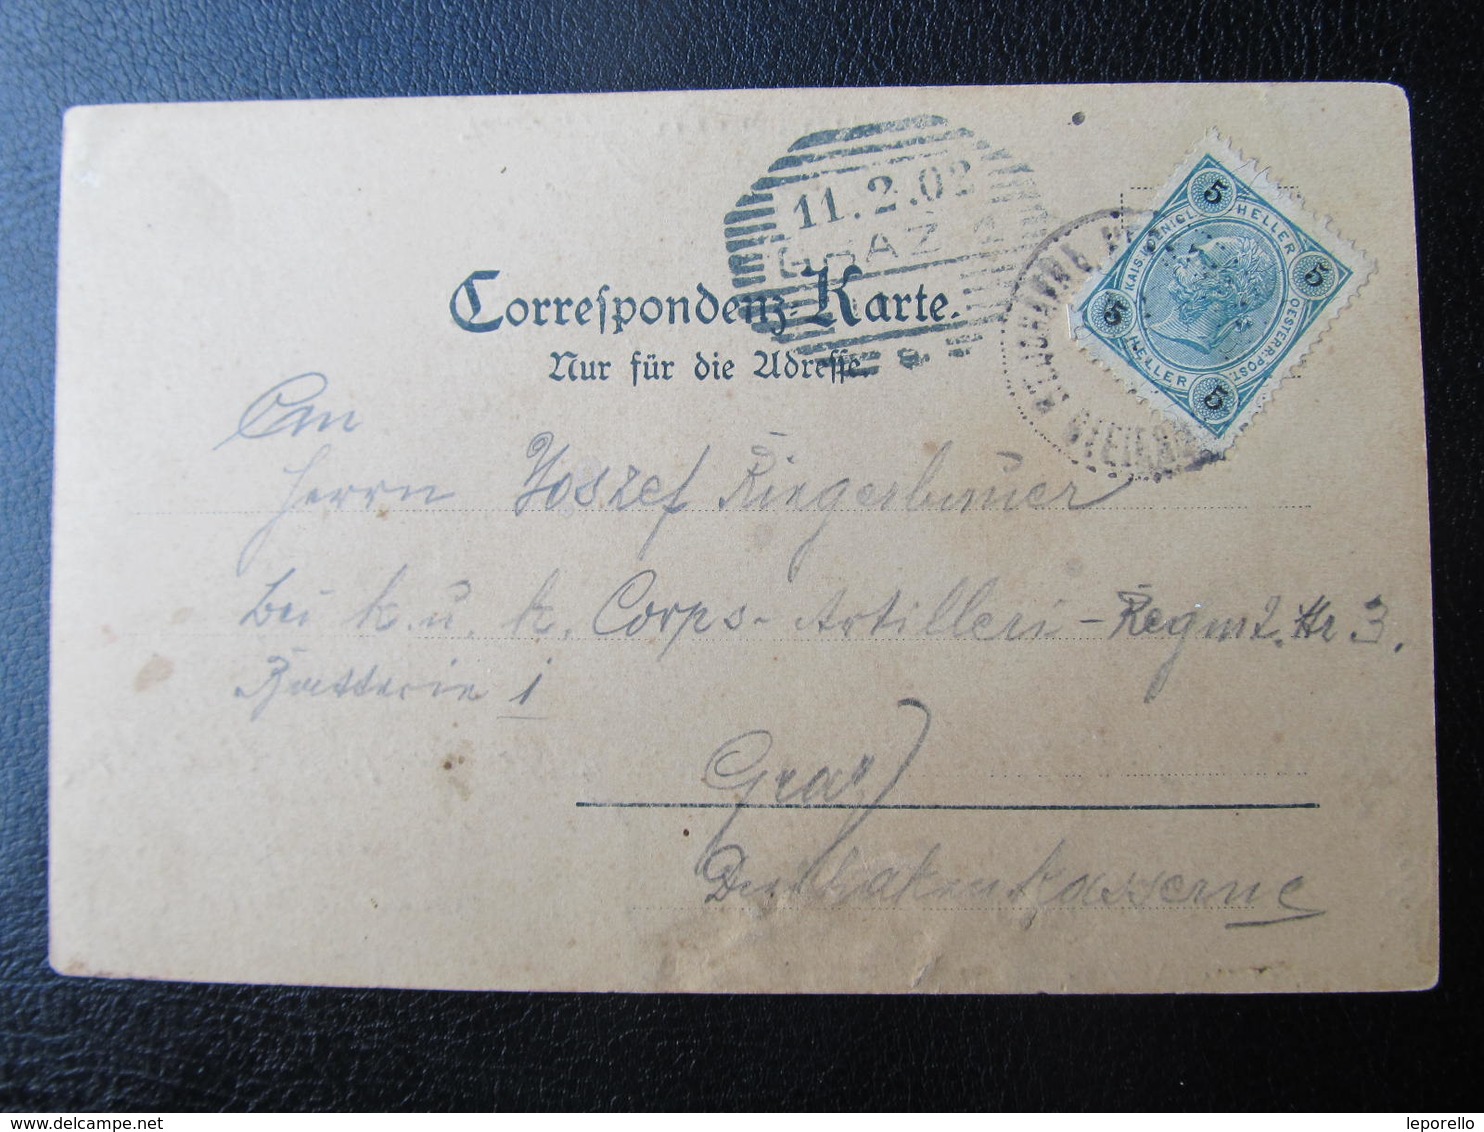 11.2.02
GRAZ
Correspondenz-Karte.
Nur für die Adresse.
5
KAIS. KÖNIGL.
HELLER
5
OESTERR. POST
5
HELLER
5
STEIERM
An
Herrn Joszef Ringerbauer
bei k. u. k. Corps-Artilleri-Regmt. Nr 3.
Batterie 1
Graz
kaserne
leporello